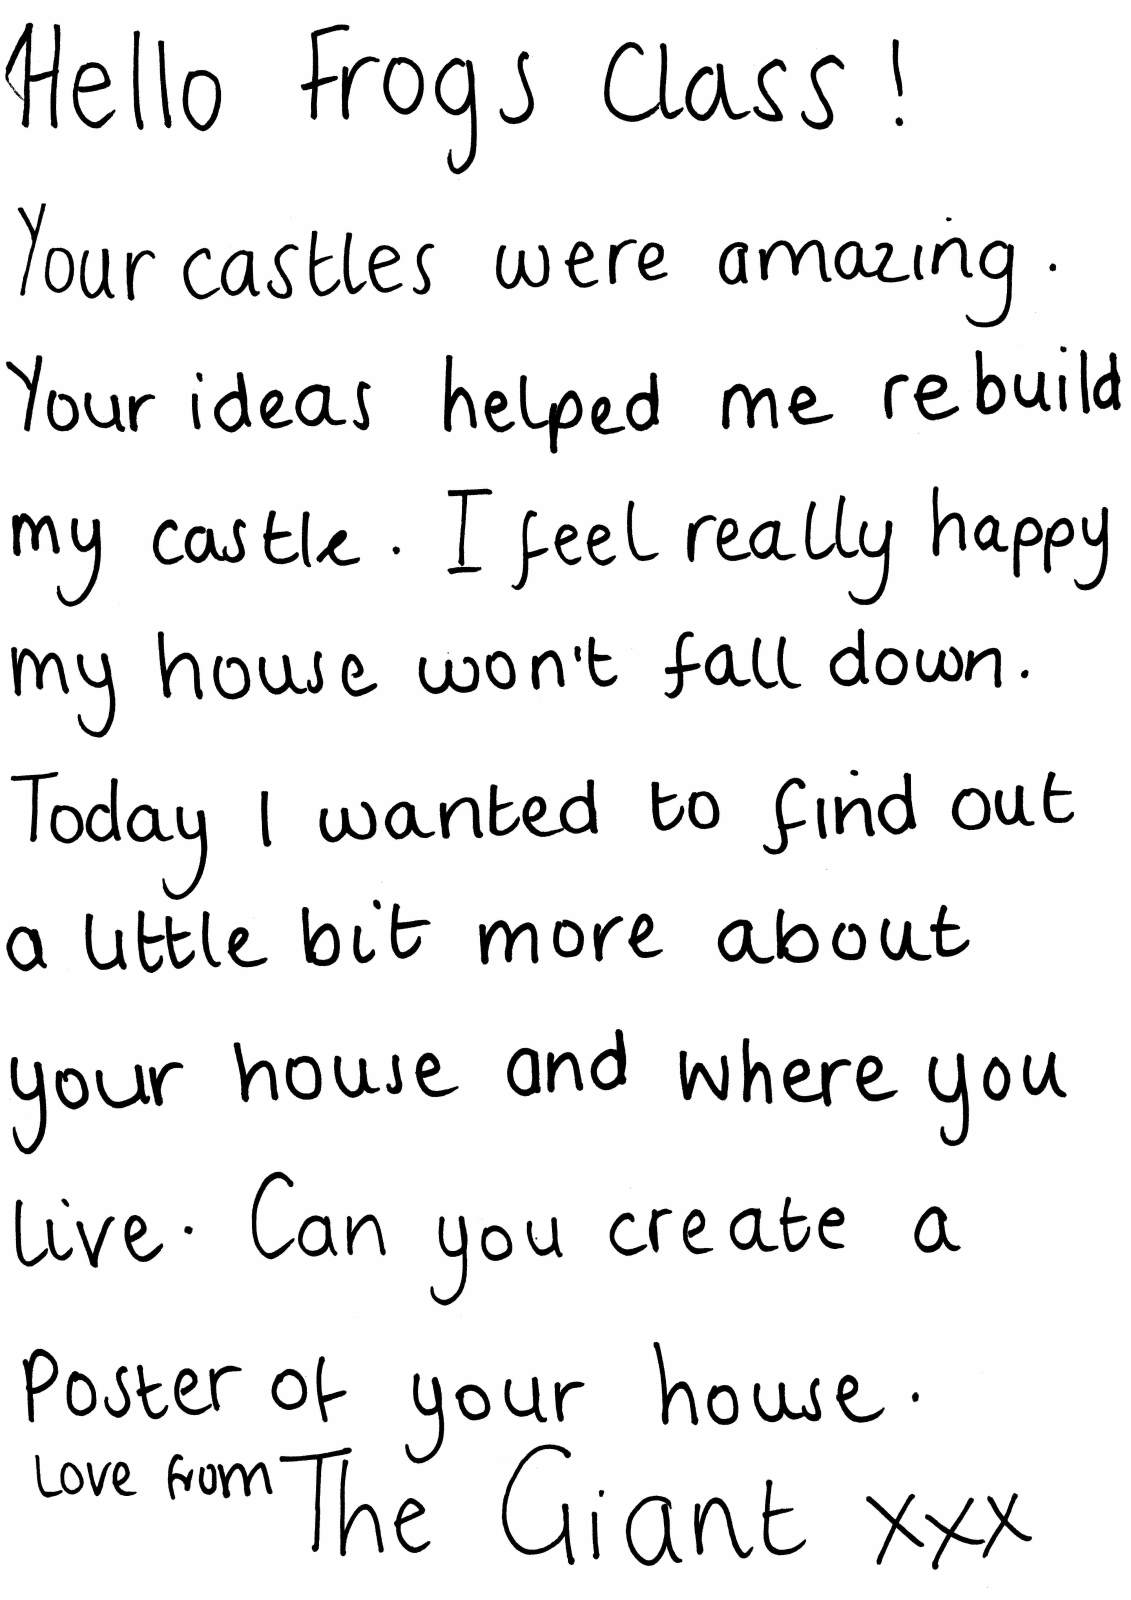 Hello Frogs Class!
Your castles were amazing.
Your ideas helped me rebuild
my castle. I feel really happy
my house won't fall down.
Today I wanted to find out
a little bit more about
your house and where you
live. Can you create a
Poster of your house.
Love from The Giant xxx